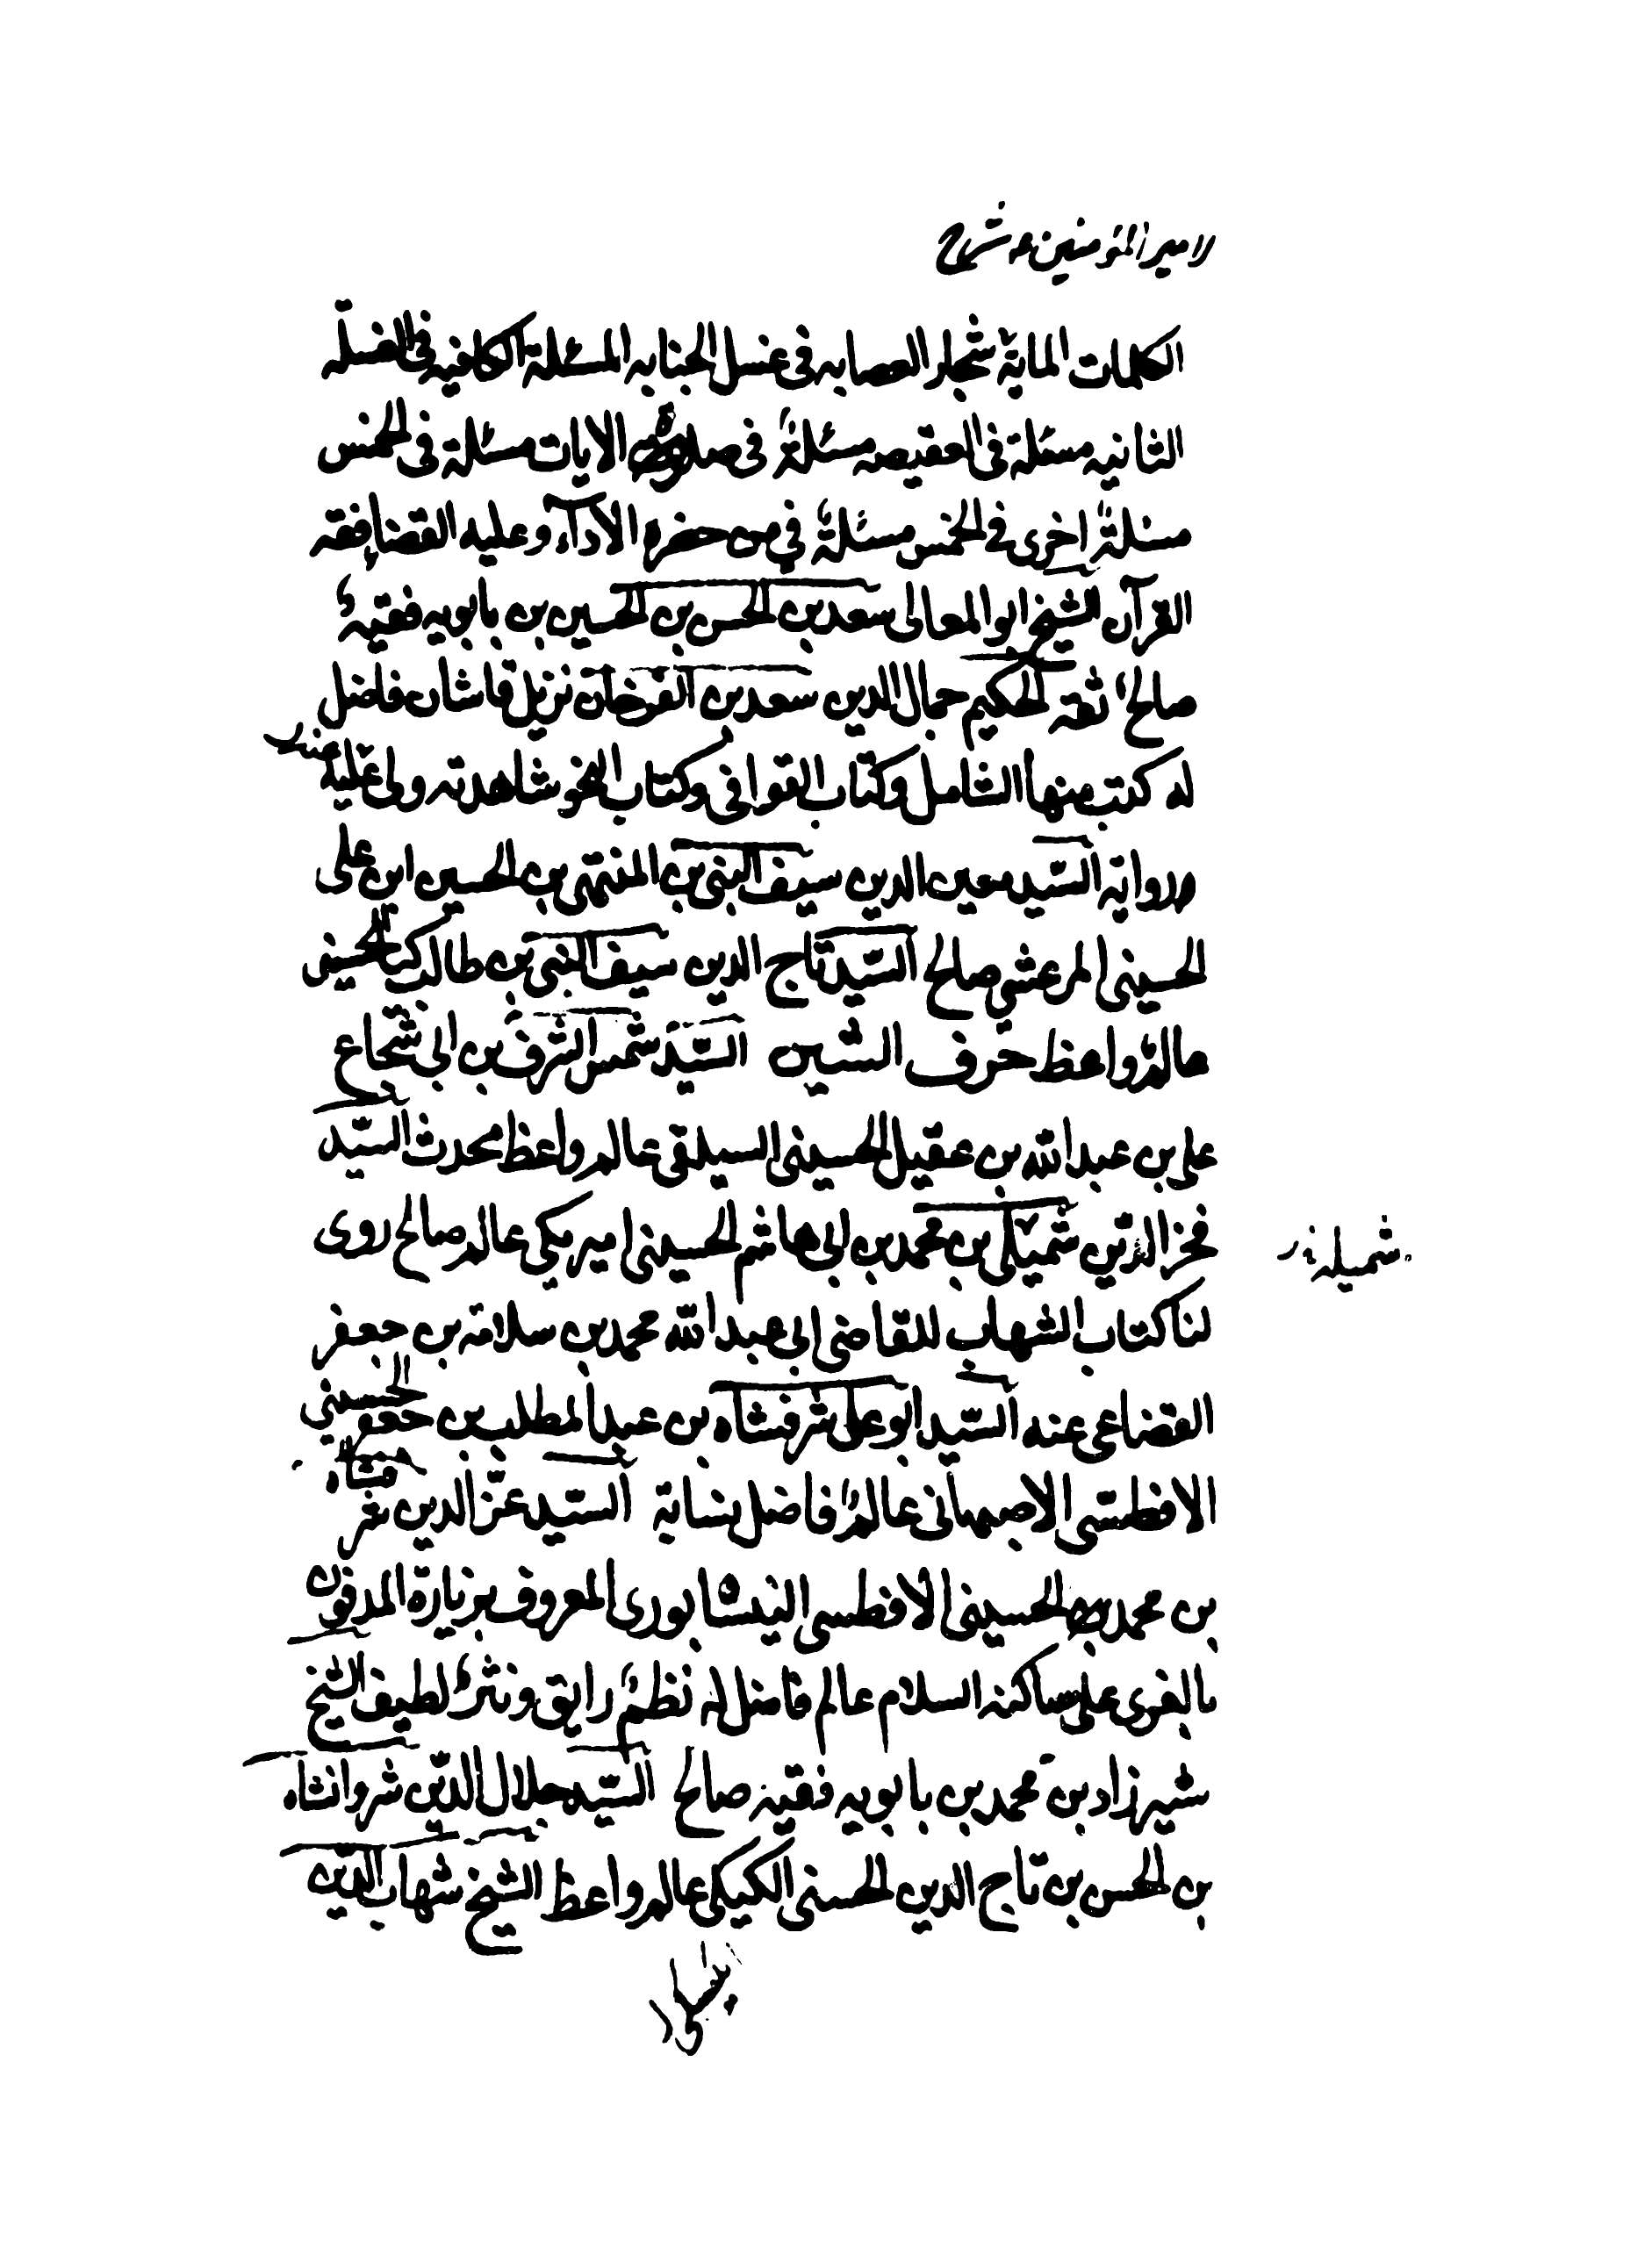 لامیر المؤمنین ع شرح
الكلمات المایة شجار العصابه فى غسل الجنابه المسئلة الكافیه فی الغسلة
الثانیه مسئلة فى العقیصه مسئلةٌ فى صلوة الایات مسئلة فى الخمس
مسئلةٌ اخرى فى الخمس مسئلةٌ فی من حضره الاداء وعلیه القضا فقه
القرآن الشیخ ابو المعالى سعد بن الحسن بن الحسین بن بابویه فقیهٌ
صالحٌ ثقة الحكیم جمال الدین سعد بن الفرخان نزیل قاشان فاضل
له كتب منها الشامل وكتاب القوافى وكتاب النحو شاهدته ولى علیه
وروایة السّید معین الدین سیف النبى بن المنتهى بن الحسین ابن على
الحسینى المرعشى صالح السّید تاج الدین سیف النبى بن طالب كیا الحسینى
عالمٌ واعظ حرف الشین السّید شمس الشرف بن ابى شجاع
على بن عبد الله بن عقیل الحسینى السیلقى عالم واعظ محدث السیّد
فخر الدّین شمیّلى بن محمد بن ابى هاشم الحسینى امیر مكى عالم صالح روى
شمیله
لنا كتاب الشهاب للقاضى ابى عبد الله محمد بن سلامة بن جعفر
القضاعى عنه السّید ابو على شرفشاه بن عبد المطلب بن جعفر الحسینی
الافطسى الاصبهانى عالمٌ فاضل نسابة السّید عزّ الدین شرفشاه
بن محمد الحسینى الافطسى النیشابورى المعروف بزیارة المدفون
بالغرى على ساكنه السلام عالم فاضل له نظمٌ رایق ونثرٌ لطیف الشیخ
شیرزاد بن محمد بن بابویه فقیه صالح السّید جلال الدّین شروانشاه
بن الحسن بن تاج الدین الحسنى الكیكى عالم واعظ الشیخ شهاب الدّین